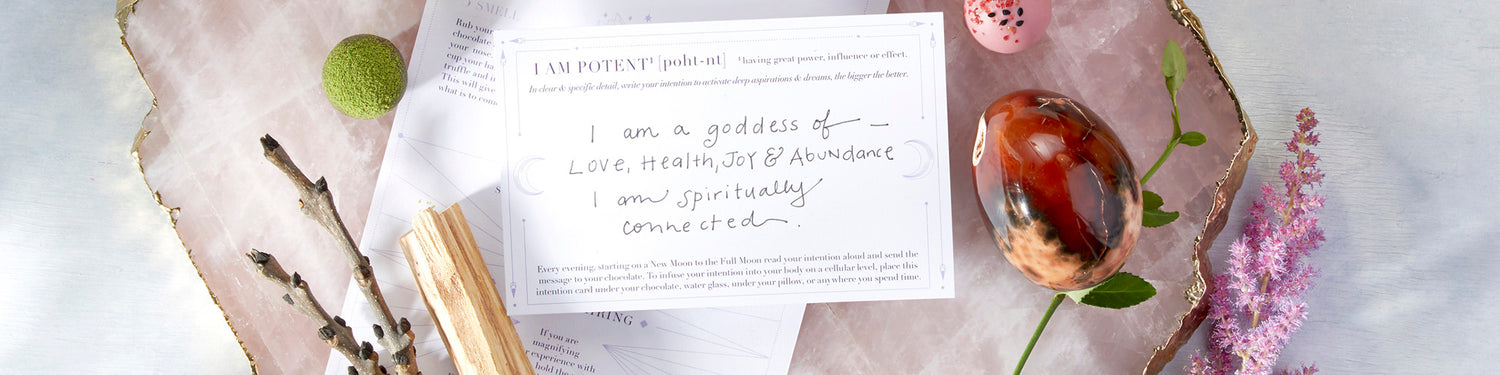 O SMELL
Rub your
chocolate
your nose.
cup your ha
truffle and i
This will give
what is to com
I AM POTENT¹ [poht-nt] ¹having great power, influence or effect.
In clear & specific detail, write your intention to activate deep aspirations & dreams, the bigger the better.
I am a goddess of —
Love, Health, Joy & Abundance
I am spiritually
connected.
Every evening, starting on a New Moon to the Full Moon read your intention aloud and send the
message to your chocolate. To infuse your intention into your body on a cellular level, place this
intention card under your chocolate, water glass, under your pillow, or anywhere you spend time.
RING
If you are
magnifying
experience with
hold the